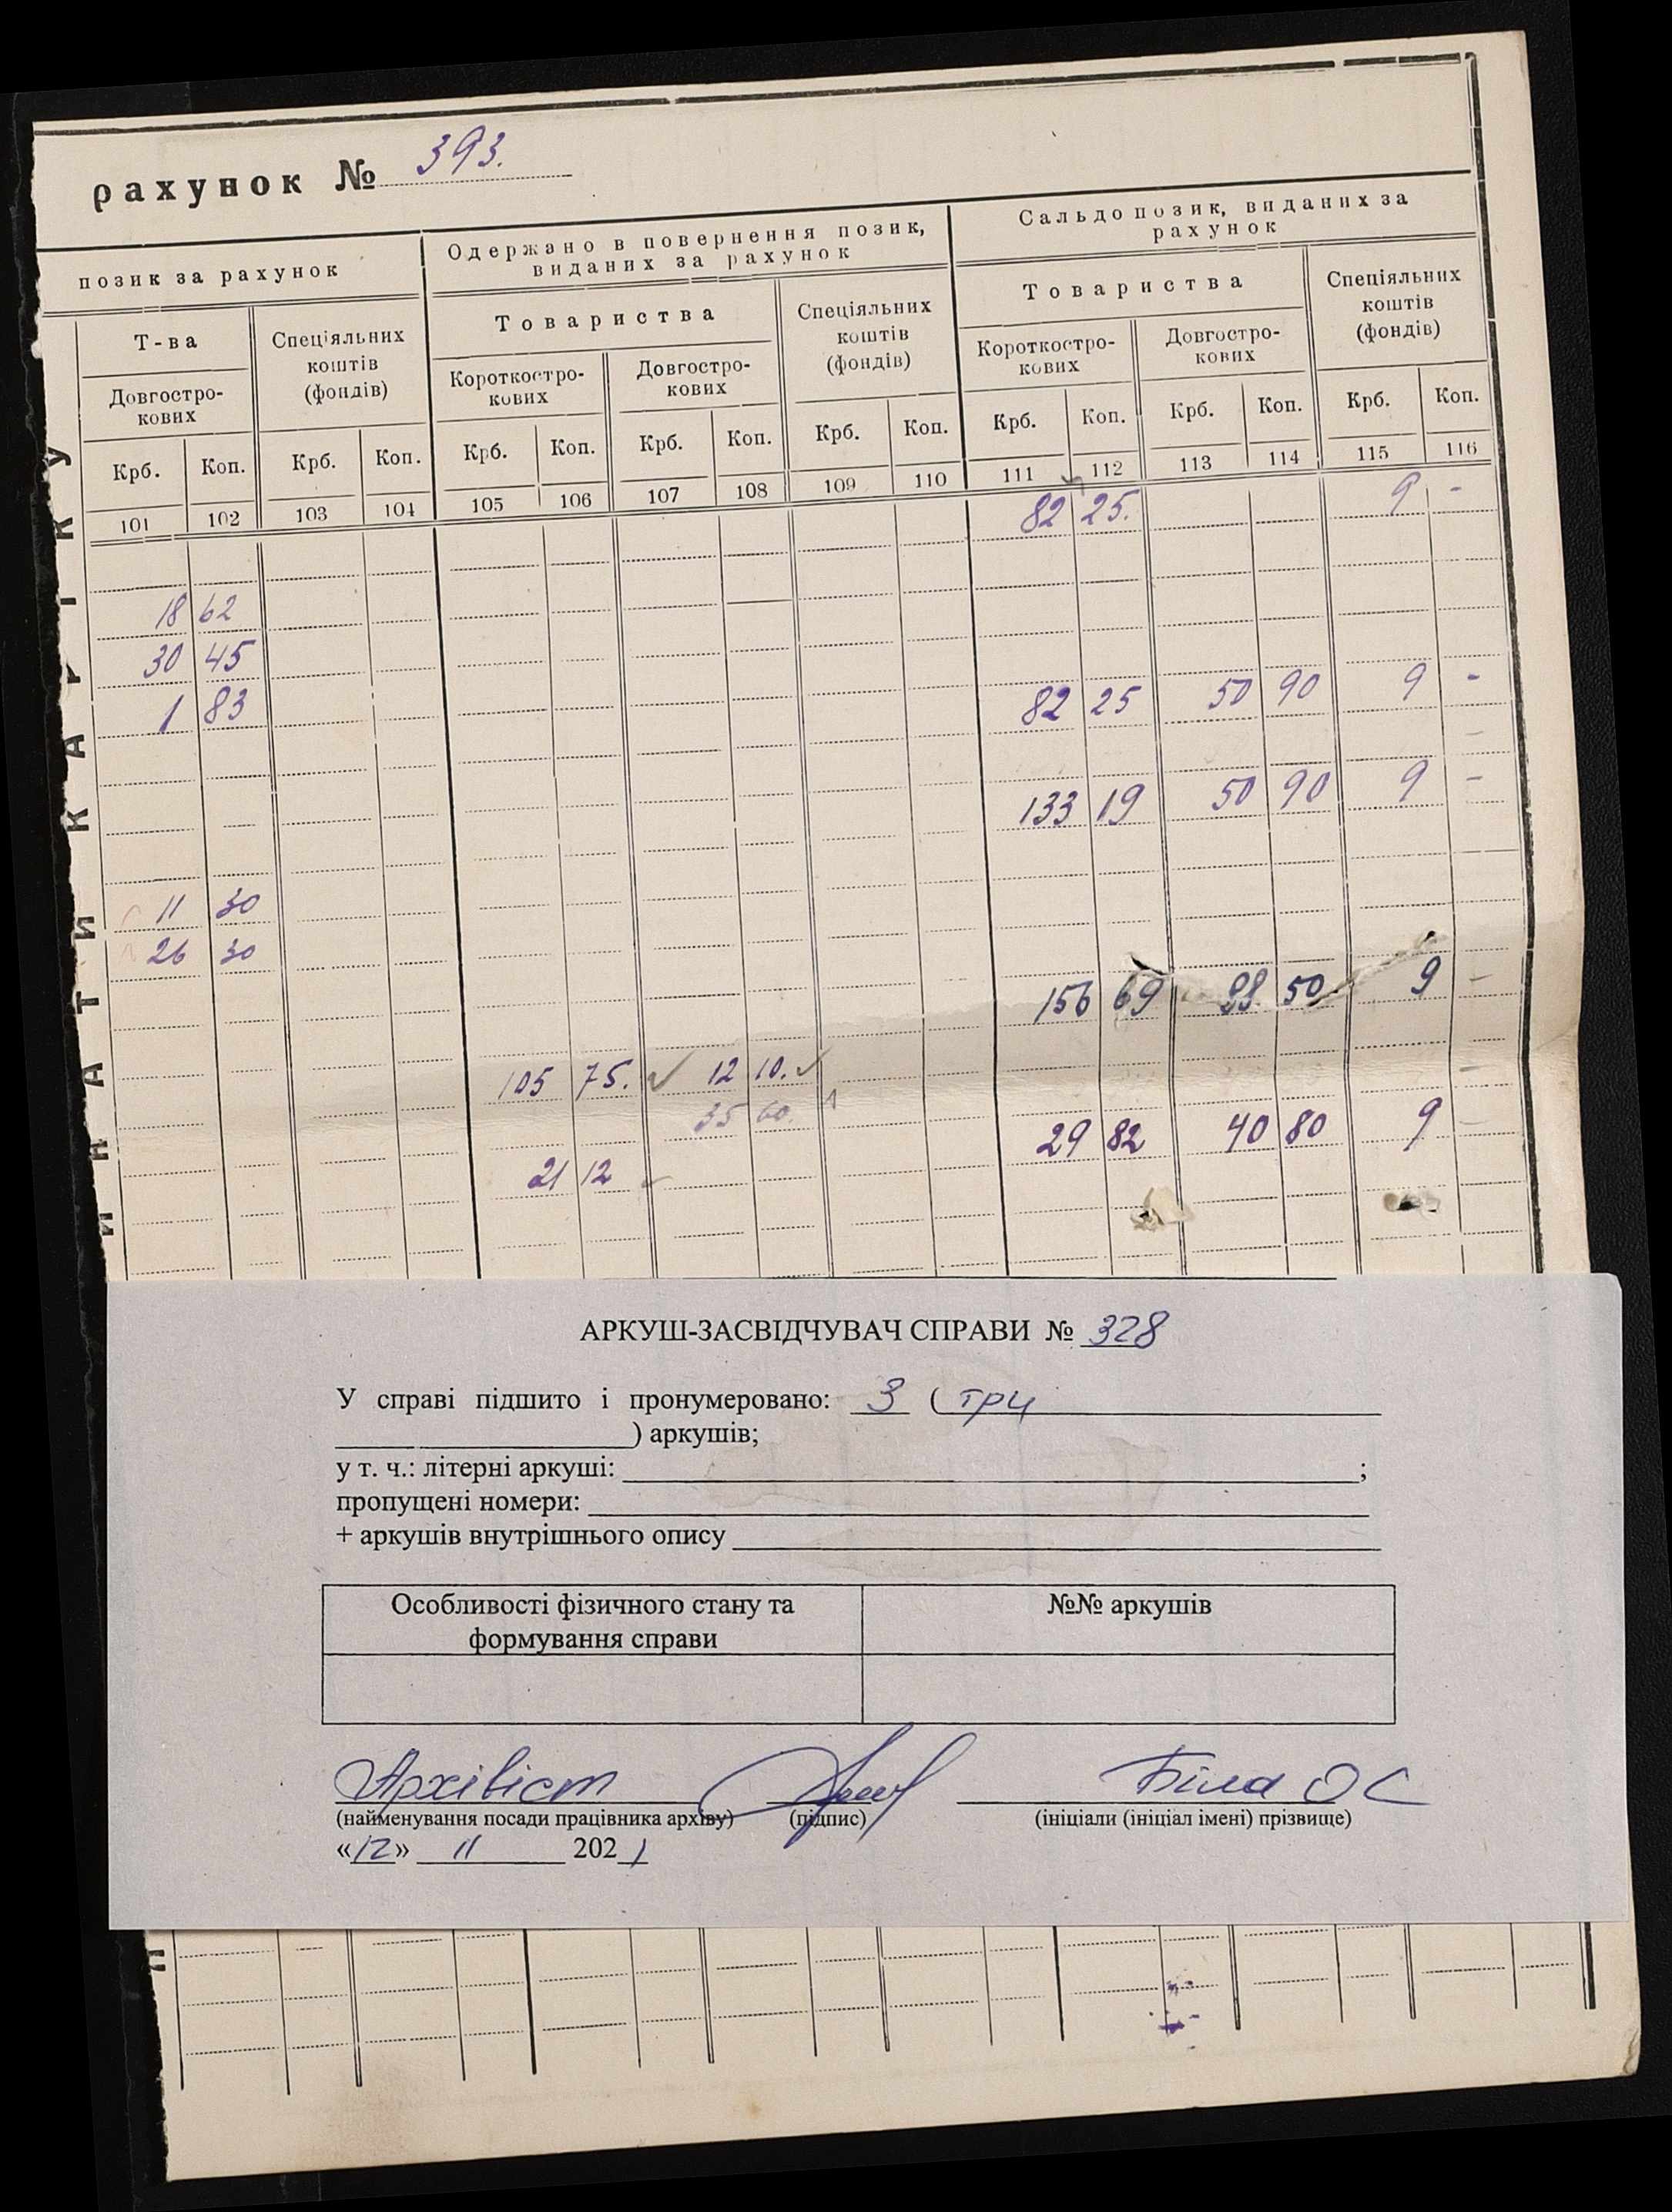 рахунок № 393.
позик за рахунок
Одержано в повернення позик, виданих за рахунок
Сальдо позик, виданих за рахунок
Т-ва
Спеціяльних коштів (фондів)
Товариства
Спеціяльних коштів (фондів)
Товариства
Спеціяльних коштів (фондів)
Довгострокових
Короткострокових
Довгострокових
Короткострокових
Довгострокових
Крб. Коп. Крб. Коп. Крб. Коп. Крб. Коп. Крб. Коп. Крб. Коп. Крб. Коп. Крб. Коп.
101 102 103 104 105 106 107 108 109 110 111 112 113 114 115 116
82 25. 9 -
18 62
30 45
1 83 82 25 50 90 9 -
133 19 50 90 9 -
11 30
26 30
156 69 88. 50 9 -
105 75. ✓ 12 10. ✓
35 60.
29 82 40 80 9 -
21 12 ✓
АРКУШ-ЗАСВІДЧУВАЧ СПРАВИ № 328
У справі підшито і пронумеровано: 3 ( три
) аркушів;
у т. ч.: літерні аркуші: ;
пропущені номери:
+ аркушів внутрішнього опису
Особливості фізичного стану та формування справи
№№ аркушів
Архівіст Біла ОС
(найменування посади працівника архіву) (підпис) (ініціали (ініціал імені) прізвище)
«12» 11 2021